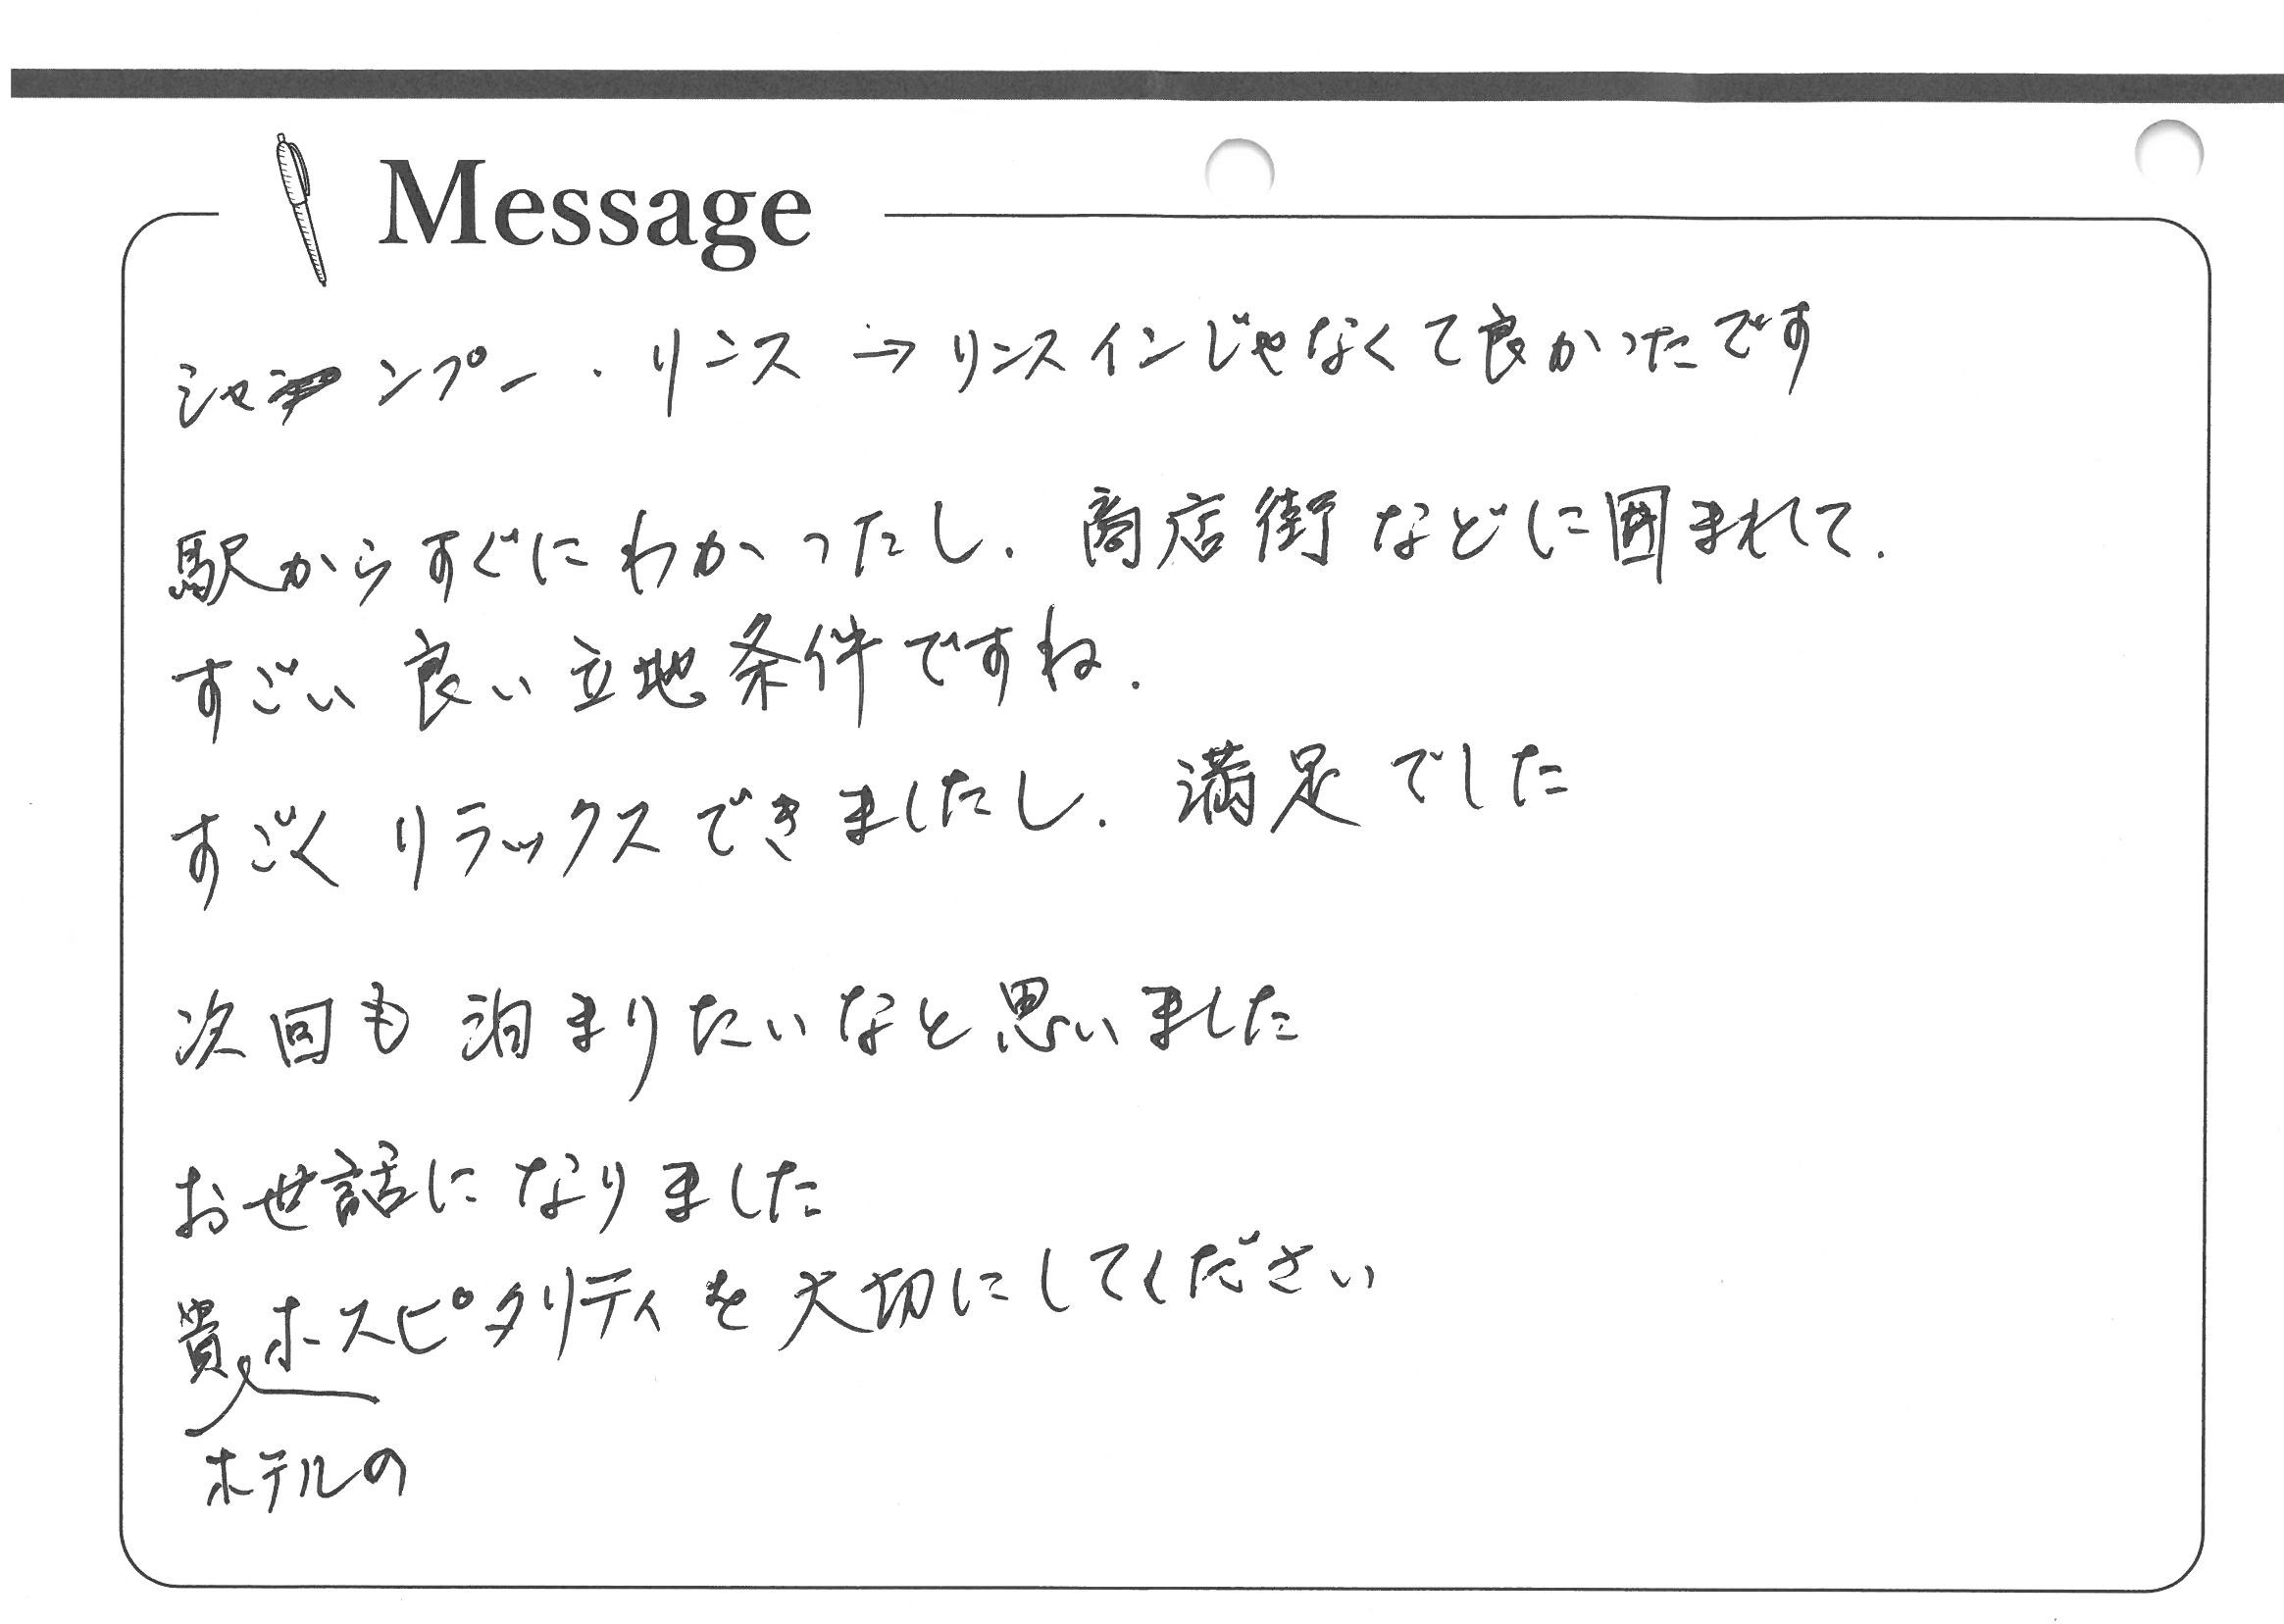 Message
シャンプー・リンス→リンスインじゃなくて良かったです
駅からすぐにわかったし、商店街などに囲まれて、
すごい良い立地条件ですね、
すごくリラックスできましたし、満足でした
次回も泊まりたいなと思いました
お世話になりました
貴ホスピタリティを大切にしてください
ホテルの